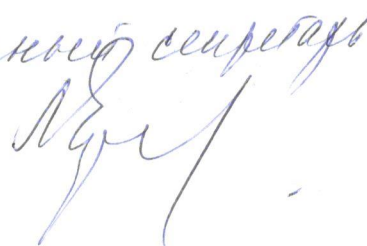 ный секретарь